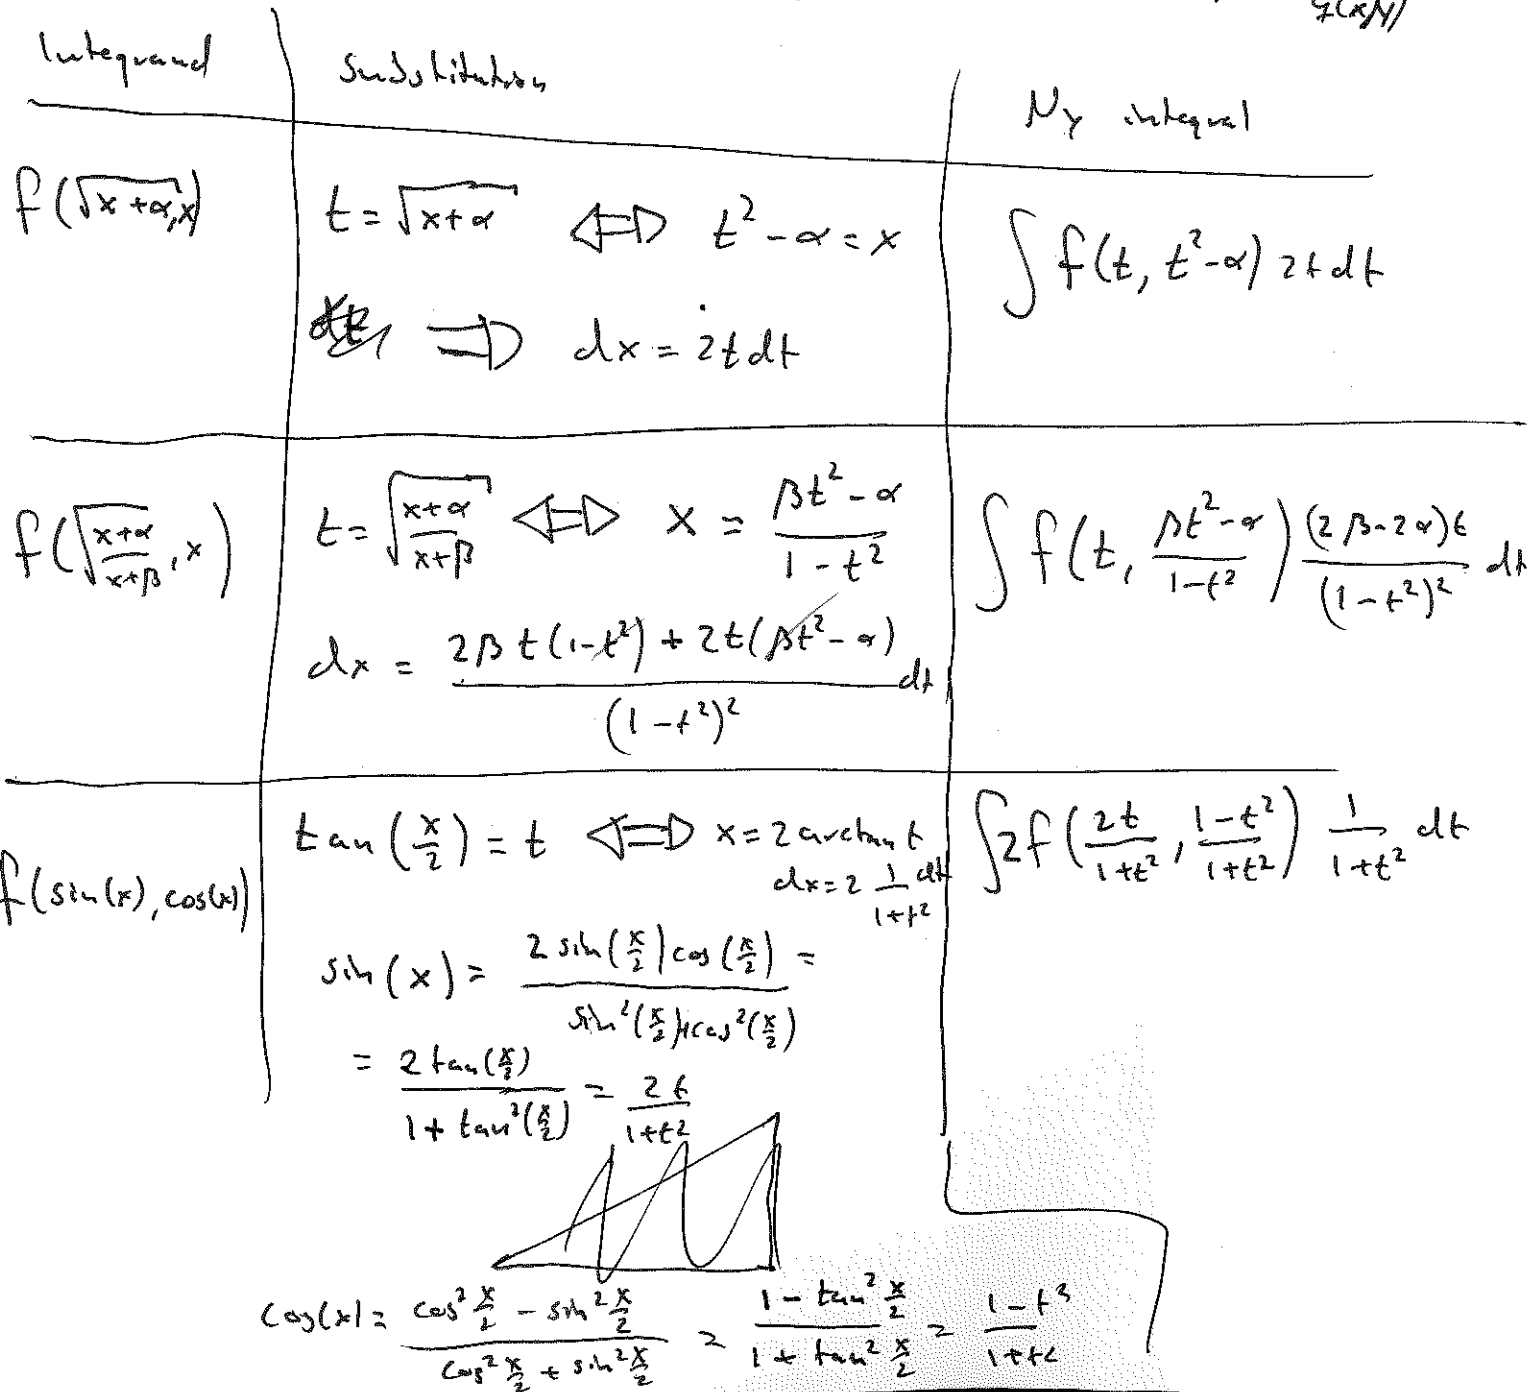 y(x,y)
Integrand
Substitution
Ny integral
f(√(x+α), x)
t = √(x+α) ⇔ t² - α = x
⇒ dx = 2t dt
∫ f(t, t²-α) 2t dt
f(√((x+α)/(x+β)), x)
t = √((x+α)/(x+β)) ⇔ x = (βt² - α)/(1 - t²)
dx = (2βt(1-t²) + 2t(βt² - α))/(1 - t²)² dt
∫ f(t, (βt²-α)/(1-t²)) ((2β-2α)t)/(1-t²)² dt
f(sin(x), cos(x))
tan(x/2) = t ⇔ x = 2 arctan t
dx = 2 1/(1+t²) dt
∫ 2f(2t/(1+t²), (1-t²)/(1+t²)) 1/(1+t²) dt
sin(x) = (2 sin(x/2) cos(x/2))/(sin²(x/2)+cos²(x/2)) =
= (2 tan(x/2))/(1 + tan²(x/2)) = 2t/(1+t²)
cos(x) = (cos² x/2 - sin² x/2)/(cos² x/2 + sin² x/2) = (1 - tan² x/2)/(1 + tan² x/2) = (1-t²)/(1+t²)